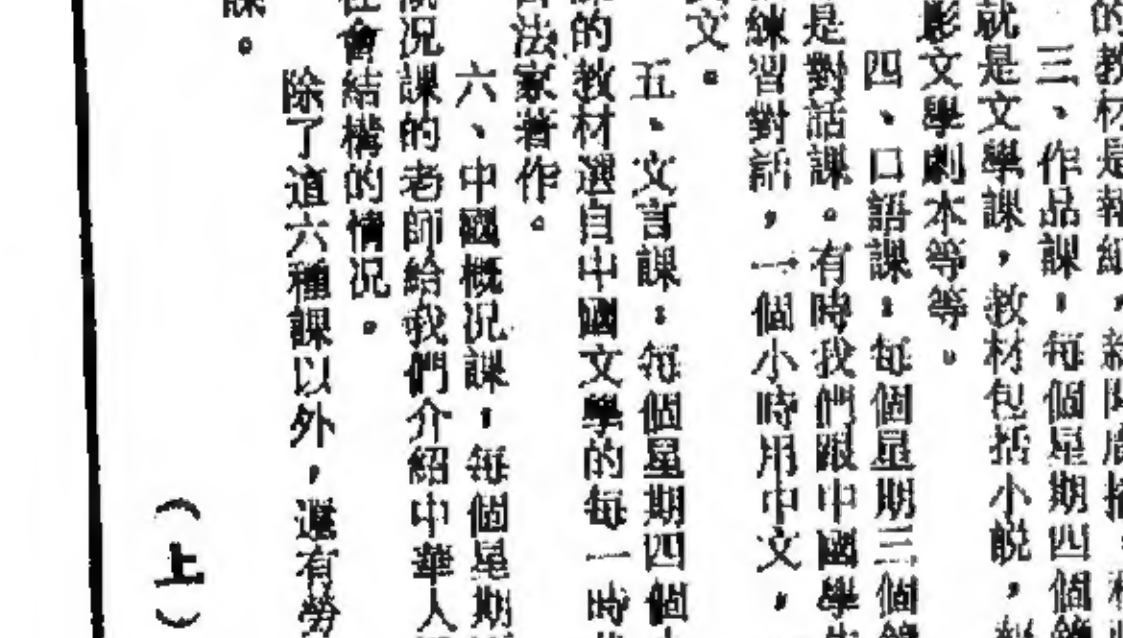 的教材是報紙,新聞廣播,
三、作品課:每個星期四個鐘
就是文學課,教材包括小說,
影文學劇本等等。
四、口語課:每個星期三個鐘
是對話課。有時我們跟中國學生
練習對話,一個小時用中文,
文。
五、文言課:每個星期四個
的教材選自中國文學的每一時
法家著作。
六、中國概況課:每個星期
概況課的老師給我們介紹中華人
社會結構的情況。
除了這六種課以外,還有勞
課。
(上)